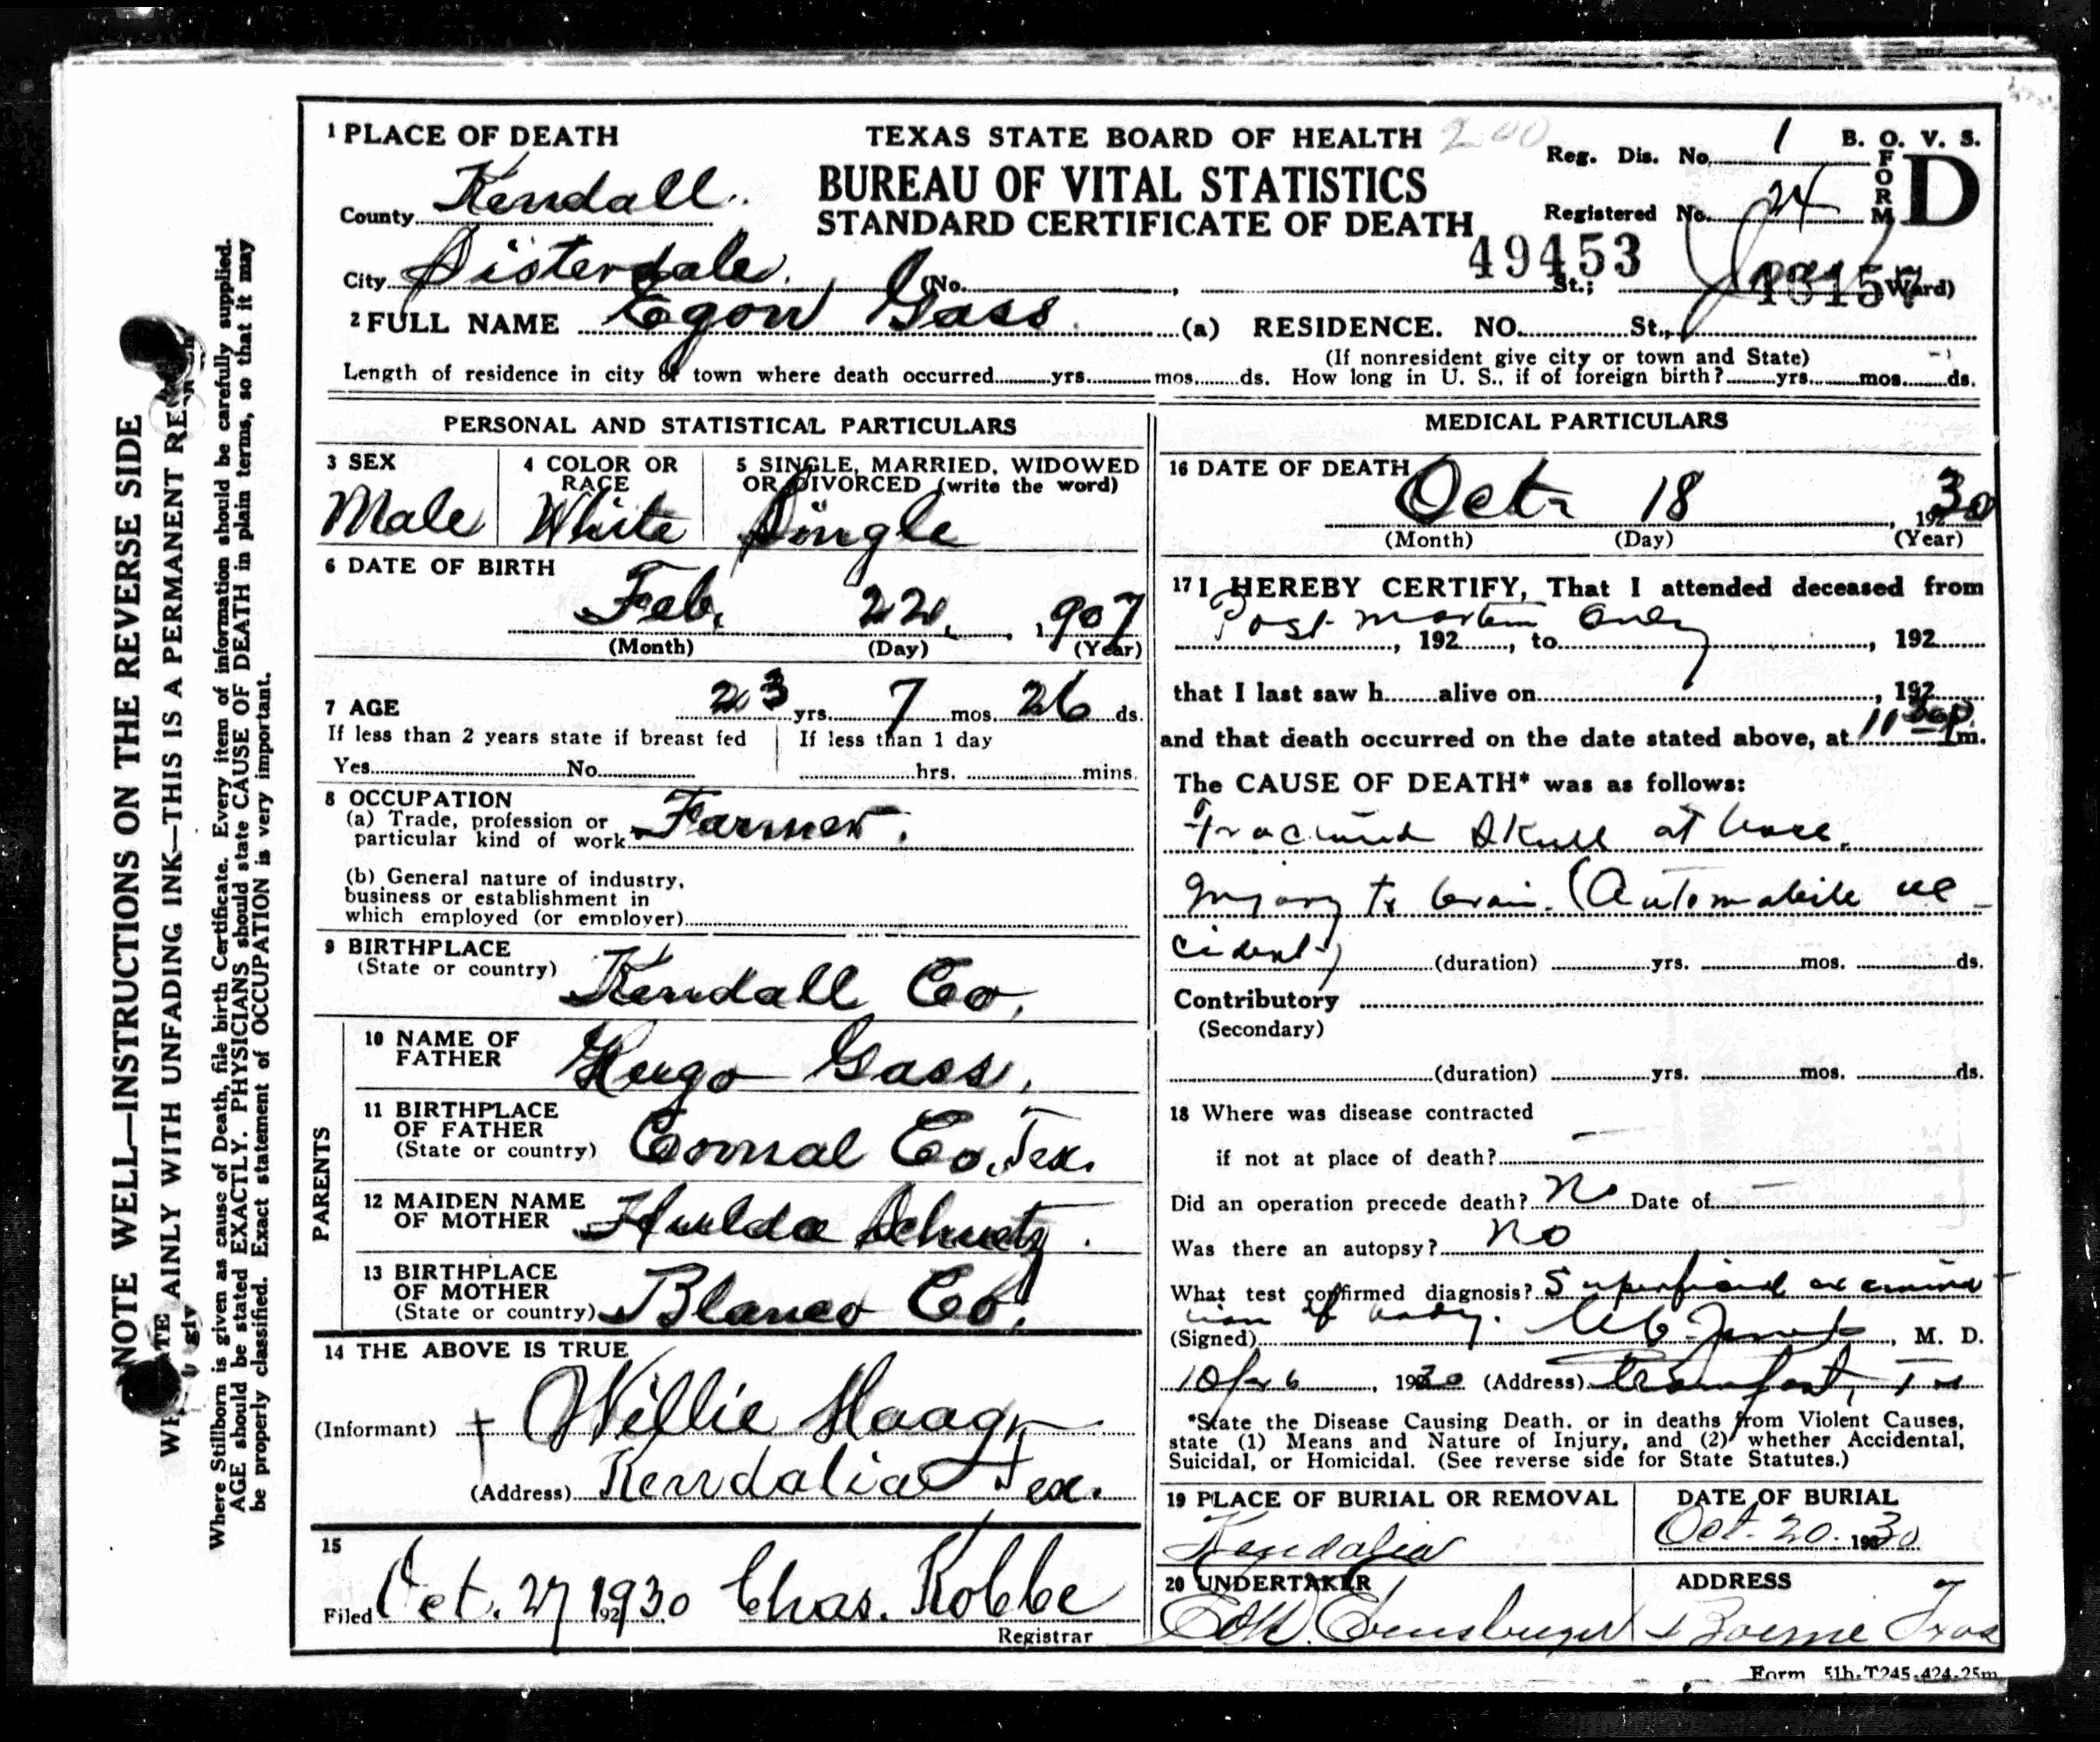 1 PLACE OF DEATH
TEXAS STATE BOARD OF HEALTH
200
Reg. Dis. No. 1
B. O. V. S.
BUREAU OF VITAL STATISTICS
STANDARD CERTIFICATE OF DEATH
FORM D
County Kendall
Registered No. 24
49453
City Sisterdale (No. , St.; Ward)
2 FULL NAME Egon Gass (a) RESIDENCE. NO. St.,
(If nonresident give city or town and State)
Length of residence in city or town where death occurred yrs. mos. ds. How long in U. S., if of foreign birth? yrs. mos. ds.
PERSONAL AND STATISTICAL PARTICULARS
3 SEX
Male
4 COLOR OR RACE
White
5 SINGLE, MARRIED, WIDOWED
OR DIVORCED (write the word)
Single
6 DATE OF BIRTH
Feb. 22, 1907
(Month) (Day) (Year)
7 AGE 23 yrs. 7 mos. 26 ds.
If less than 2 years state if breast fed
Yes No
If less than 1 day
hrs. mins.
8 OCCUPATION
(a) Trade, profession or
particular kind of work Farmer.
(b) General nature of industry,
business or establishment in
which employed (or employer)
9 BIRTHPLACE
(State or country) Kendall Co.
PARENTS
10 NAME OF
FATHER Hugo Gass,
11 BIRTHPLACE
OF FATHER
(State or country) Comal Co. Tex.
12 MAIDEN NAME
OF MOTHER Hulda Schuetz.
13 BIRTHPLACE
OF MOTHER
(State or country) Blanco Co.
14 THE ABOVE IS TRUE
(Informant) Willie Haag
(Address) Kendalia Tex.
15
Filed Oct. 27 1930 Chas. Kobbe
Registrar
MEDICAL PARTICULARS
16 DATE OF DEATH
Oct 18 1930
(Month) (Day) (Year)
17 I HEREBY CERTIFY, That I attended deceased from
Post mortem only
, 192 , to , 192
that I last saw h alive on , 192
and that death occurred on the date stated above, at 11 30 p m.
The CAUSE OF DEATH* was as follows:
Fractured skull at base.
Injury to brain. (Automobile ac
cident) (duration) yrs. mos. ds.
Contributory
(Secondary)
(duration) yrs. mos. ds.
18 Where was disease contracted
if not at place of death?
Did an operation precede death? No Date of
Was there an autopsy? no
What test confirmed diagnosis? Superficial examina
tion of body.
(Signed) , M. D.
1930 (Address) Comfort, Tex
*State the Disease Causing Death, or in deaths from Violent Causes,
state (1) Means and Nature of Injury, and (2) whether Accidental,
Suicidal, or Homicidal. (See reverse side for State Statutes.)
19 PLACE OF BURIAL OR REMOVAL
Kendalia
DATE OF BURIAL
Oct. 20. 1930
20 UNDERTAKER
ADDRESS
Boerne Texas
Form 51h-T245-424-25m
NOTE WELL—INSTRUCTIONS ON THE REVERSE SIDE
AINLY WITH UNFADING INK—THIS IS A PERMANENT
Where Stillborn is given as cause of Death, file birth Certificate. Every item of information should be carefully supplied.
AGE should be stated EXACTLY. PHYSICIANS should state CAUSE OF DEATH in plain terms, so that it may
be properly classified. Exact statement of OCCUPATION is very important.